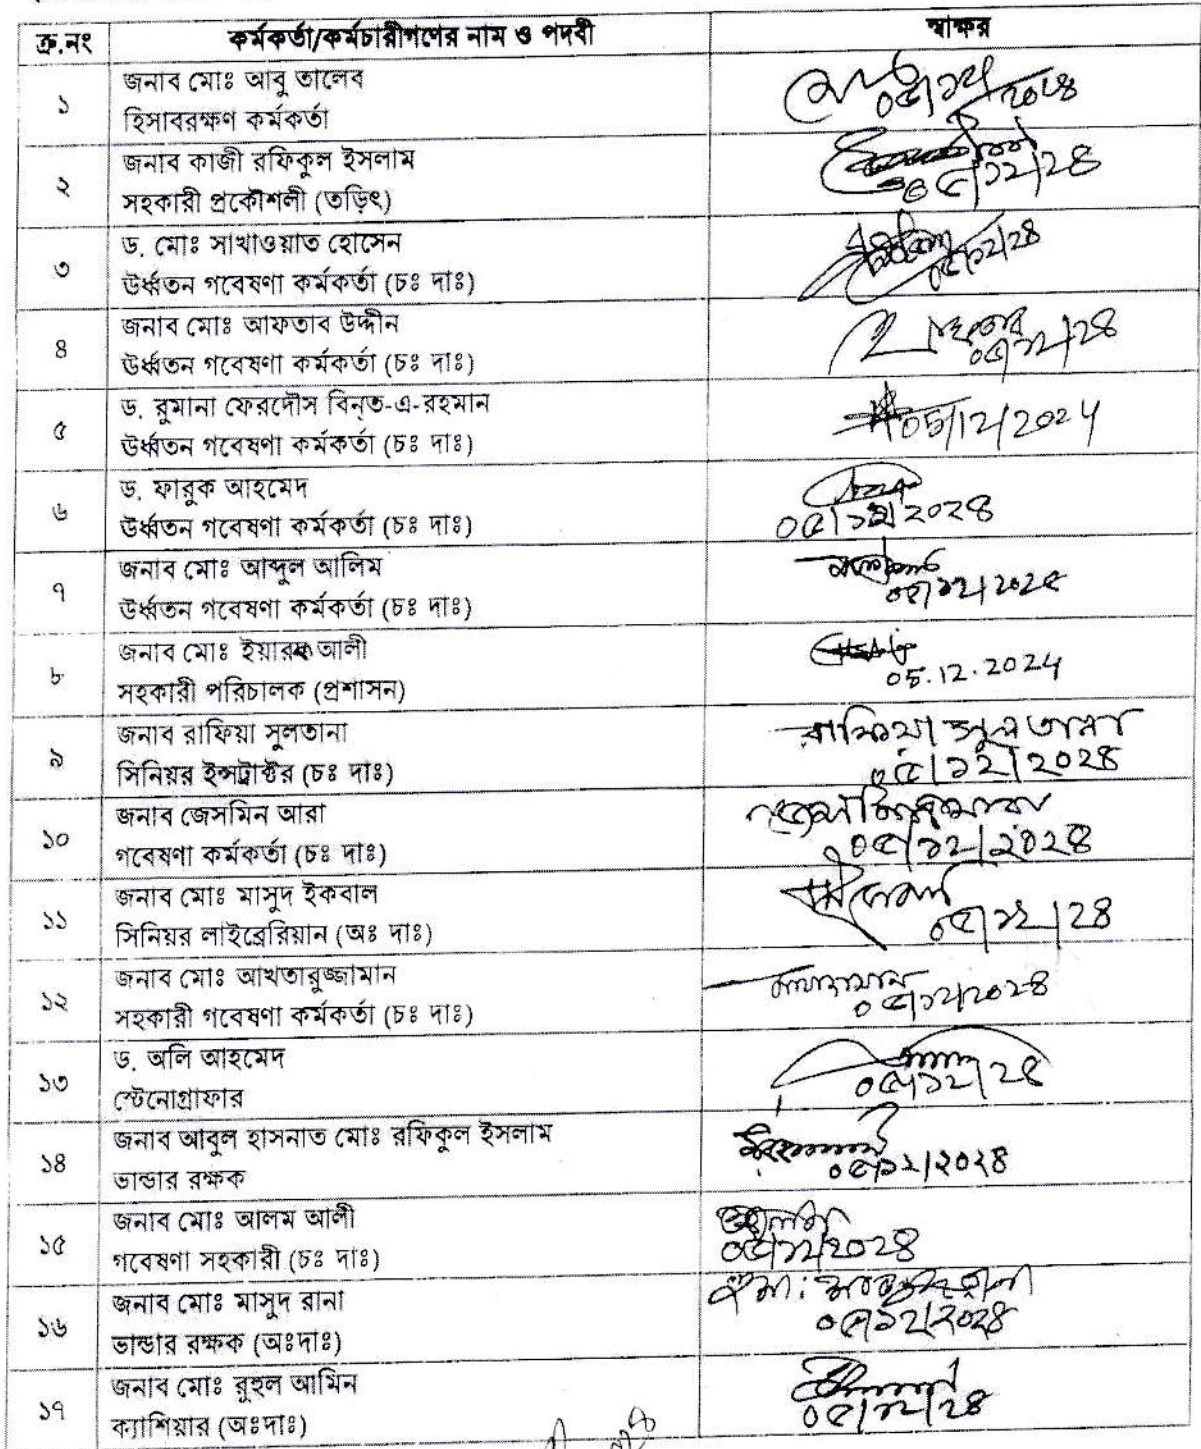 ক্র.নং কর্মকর্তা/কর্মচারীগণের নাম ও পদবী স্বাক্ষর
১ জনাব মোঃ আবু তালেব
হিসাবরক্ষণ কর্মকর্তা
০৫/১২/২০২৪
২ জনাব কাজী রফিকুল ইসলাম
সহকারী প্রকৌশলী (তড়িৎ)
০৫/১২/২৪
৩ ড. মোঃ সাখাওয়াত হোসেন
উর্ধ্বতন গবেষণা কর্মকর্তা (চঃ দাঃ)
০৫/১২/২৪
৪ জনাব মোঃ আফতাব উদ্দীন
উর্ধ্বতন গবেষণা কর্মকর্তা (চঃ দাঃ)
০৫/১২/২৪
৫ ড. রুমানা ফেরদৌস বিন্‌ত-এ-রহমান
উর্ধ্বতন গবেষণা কর্মকর্তা (চঃ দাঃ)
05/12/2024
৬ ড. ফারুক আহমেদ
উর্ধ্বতন গবেষণা কর্মকর্তা (চঃ দাঃ)
০৫/১২/২০২৪
৭ জনাব মোঃ আব্দুল আলিম
উর্ধ্বতন গবেষণা কর্মকর্তা (চঃ দাঃ)
৮ জনাব মোঃ ইয়ারক আলী
সহকারী পরিচালক (প্রশাসন)
05.12.2024
৯ জনাব রাফিয়া সুলতানা
সিনিয়র ইন্সট্রাক্টর (চঃ দাঃ)
রাফিয়া সুলতানা
০৫/১২/২০২৪
১০ জনাব জেসমিন আরা
গবেষণা কর্মকর্তা (চঃ দাঃ)
০৫/১২/২০২৪
১১ জনাব মোঃ মাসুদ ইকবাল
সিনিয়র লাইব্রেরিয়ান (অঃ দাঃ)
০৫/১২/২৪
১২ জনাব মোঃ আখতারুজ্জামান
সহকারী গবেষণা কর্মকর্তা (চঃ দাঃ)
০৫/১২/২০২৪
১৩ ড. অলি আহমেদ
স্টেনোগ্রাফার
০৫/১২/২৪
১৪ জনাব আবুল হাসনাত মোঃ রফিকুল ইসলাম
ভান্ডার রক্ষক
০৫/১২/২০২৪
১৫ জনাব মোঃ আলম আলী
গবেষণা সহকারী (চঃ দাঃ)
০৫/১২/২০২৪
১৬ জনাব মোঃ মাসুদ রানা
ভান্ডার রক্ষক (অঃদাঃ)
০৫/১২/২০২৪
১৭ জনাব মোঃ রুহুল আমিন
ক্যাশিয়ার (অঃদাঃ)
০৫/১২/২৪